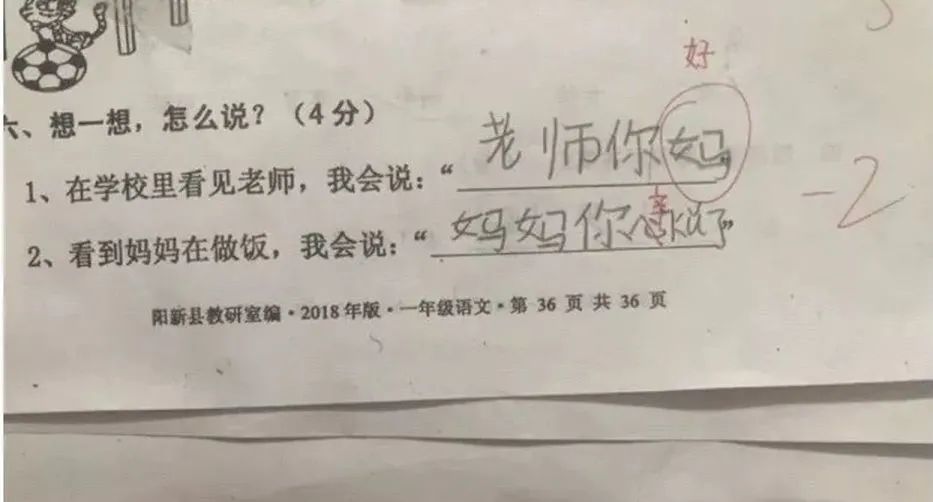 好
六、想一想，怎么说？（4分）
1、在学校里看见老师，我会说：“老师你妈”
-2
辛
2、看到妈妈在做饭，我会说：“妈妈你了”
阳新县教研室编·2018年版·一年级语文·第 36 页 共 36 页